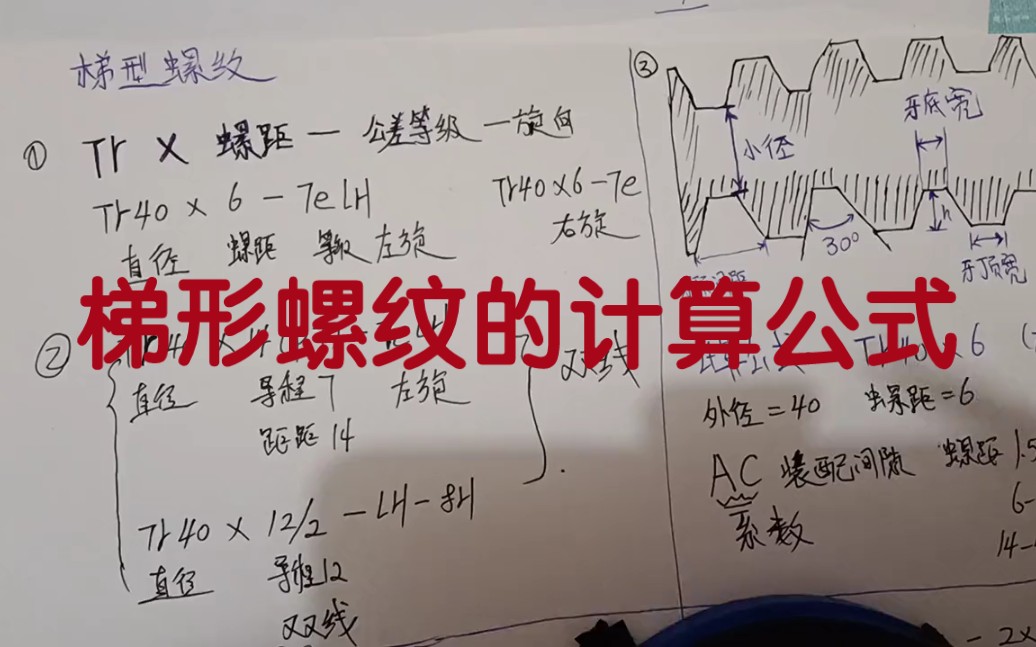 梯型螺纹
① Tr × 螺距 — 公差等级 — 旋向
Tr40 × 6 - 7e LH
直径 螺距 等级 左旋
Tr40×6-7e
右旋
梯形螺纹的计算公式
②
直径 导程7 左旋
距距14
双线
Tr40 × 12/2 - LH - 8H
直径 导程12
双线
③
小径
牙底宽
h
30°
牙顶宽
6
外径=40 螺距=6
AC 装配间隙 螺距 1.5
系数
6-
14-
- 2×